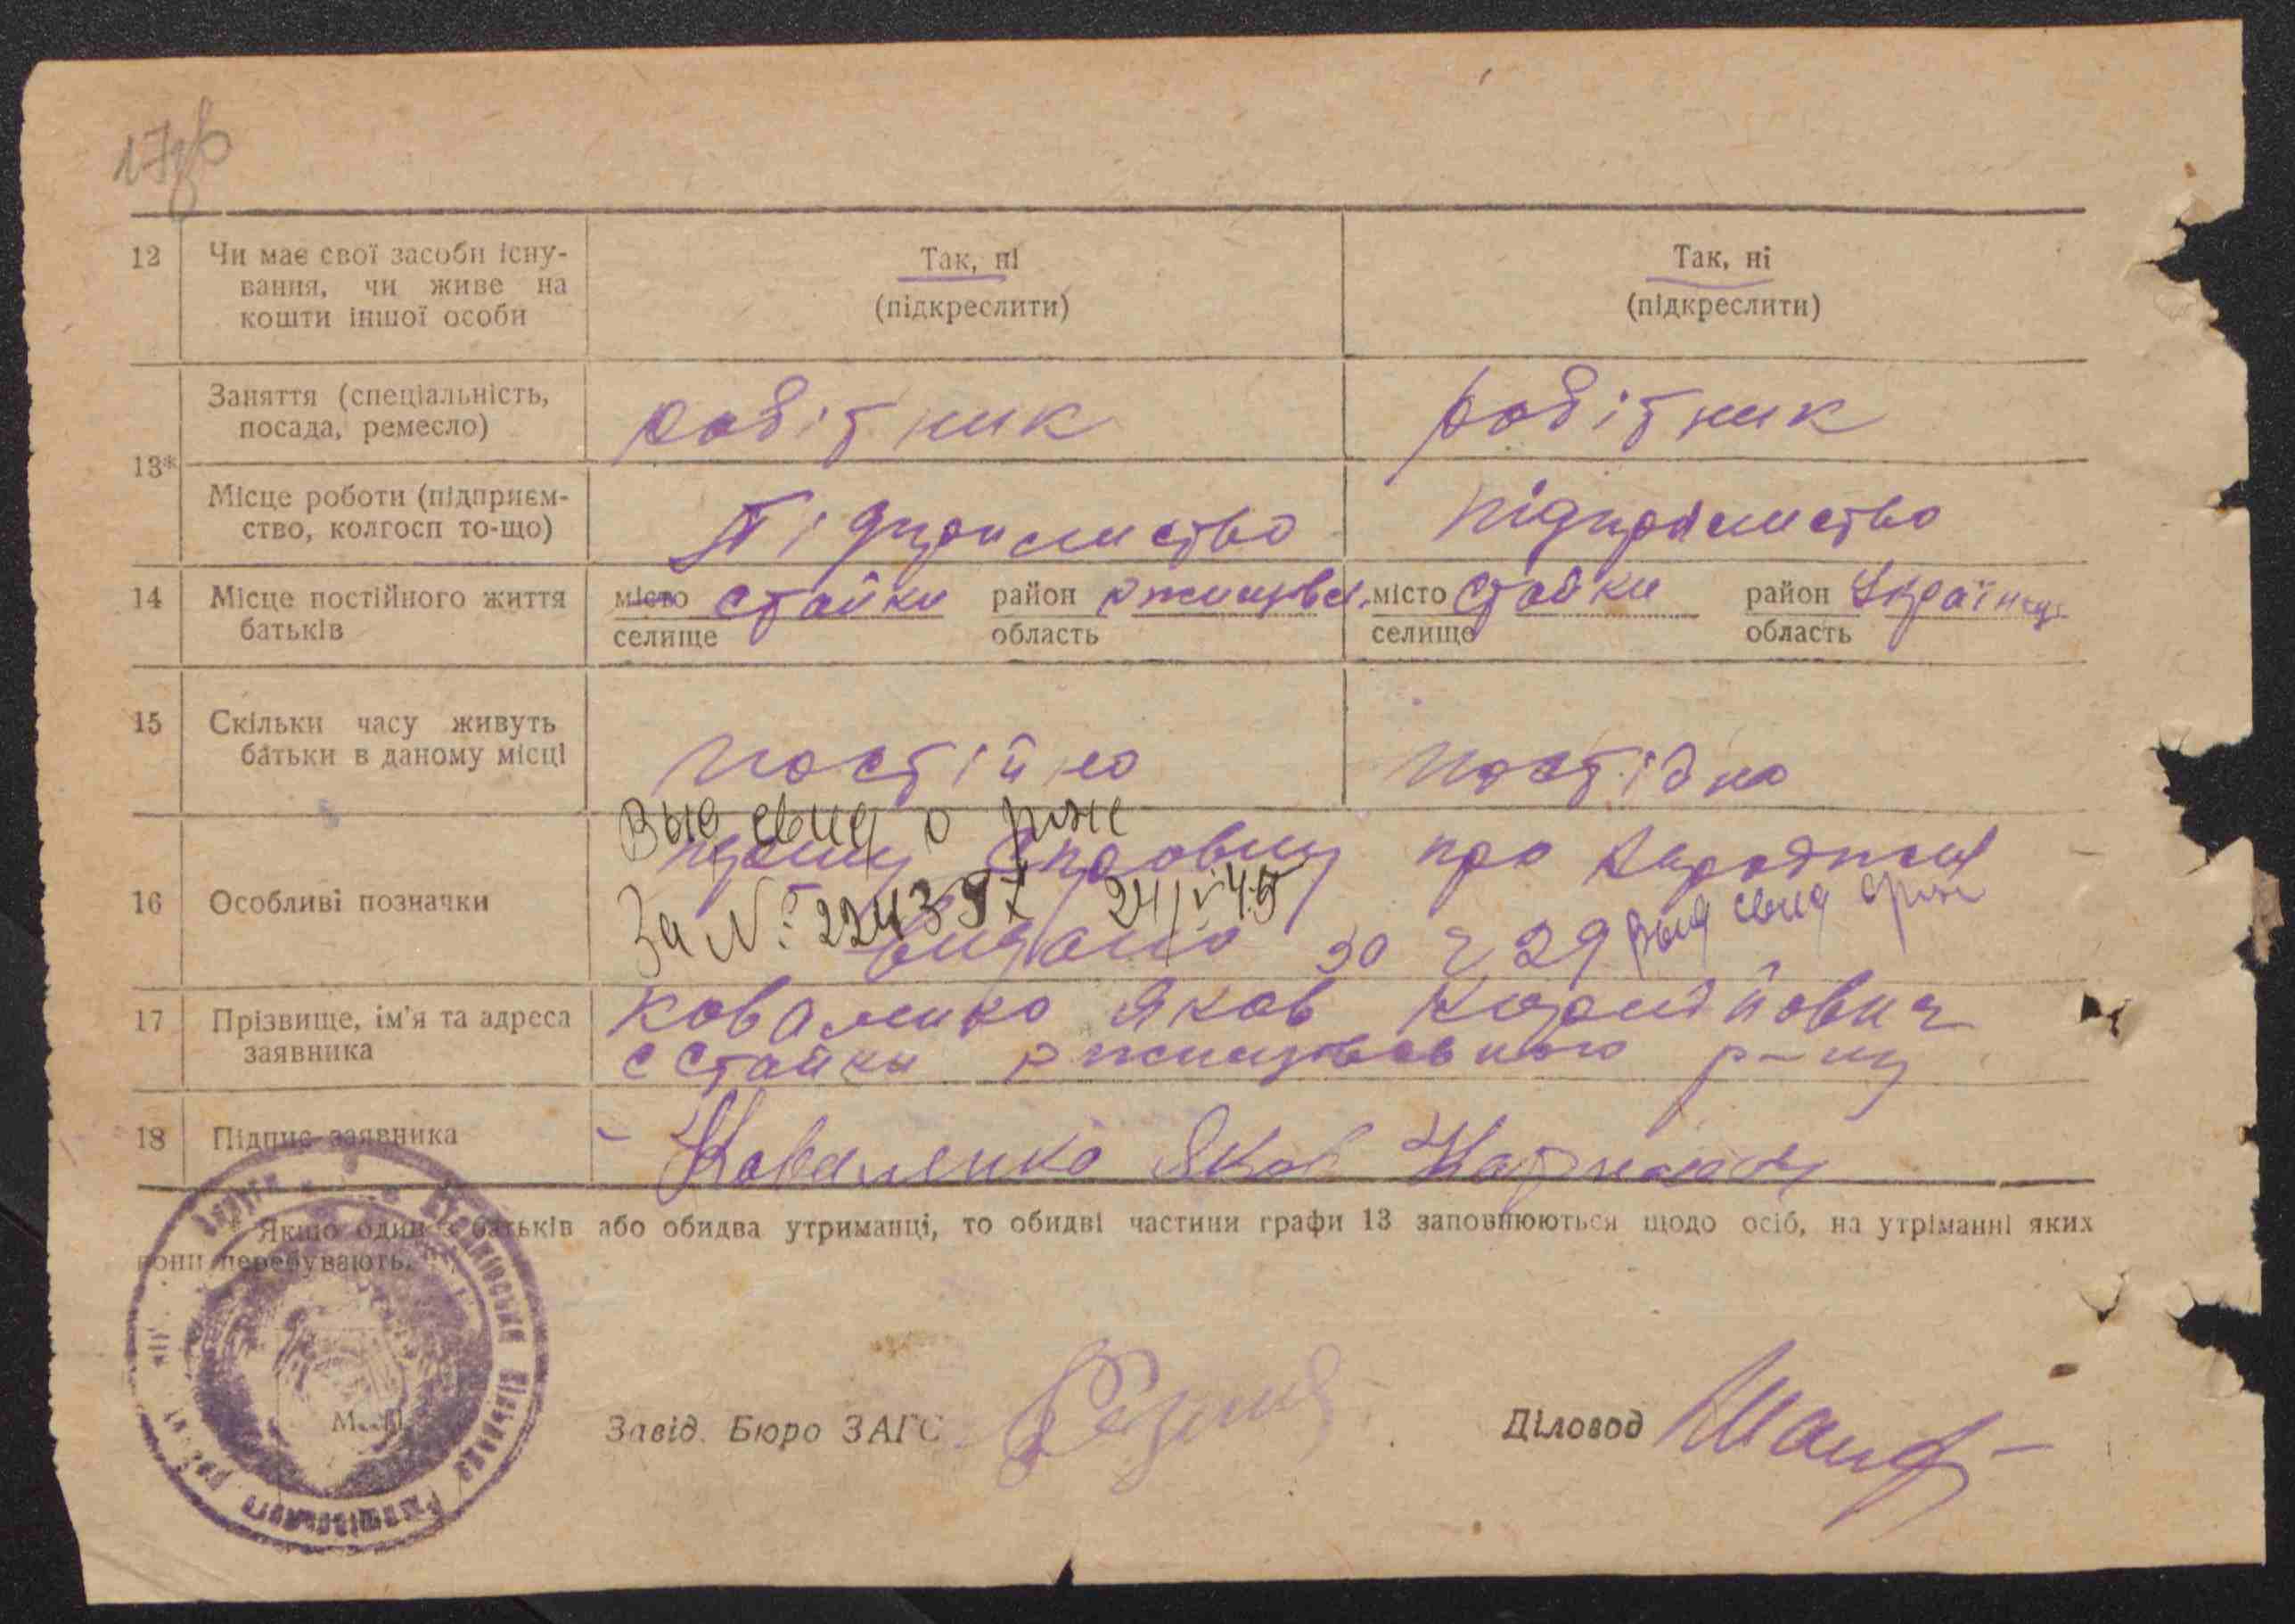 12 Чи має свої засоби існу- Так, ні Так, ні
вання, чи живе на (підкреслити) (підкреслити)
кошти іншої особи
Заняття (спеціальність, робітник робітник
посада, ремесло)
13*
Місце роботи (підприєм- Підприємство підприємство
ство, колгосп то-що)
14 Місце постійного життя місто Стайки район ржищевс. місто Стайки район Українець
батьків селище область селище область
15 Скільки часу живуть
батьки в даному місці постійно постійно
Выд свид о рож
першу про
16 Особливі позначки За № 224397 24/V 45
видано за 29 выд свид о рож
17 Прізвище, ім'я та адреса Коваленко Яков
заявника с Стайки ржищевського р-ну
18 Підпис заявника Коваленко Яков
* Якщо один з батьків або обидва утриманці, то обидві частини графи 13 заповнюються щодо осіб, на утріманні яких
вони перебувають.
Завід. Бюро ЗАГС Діловод